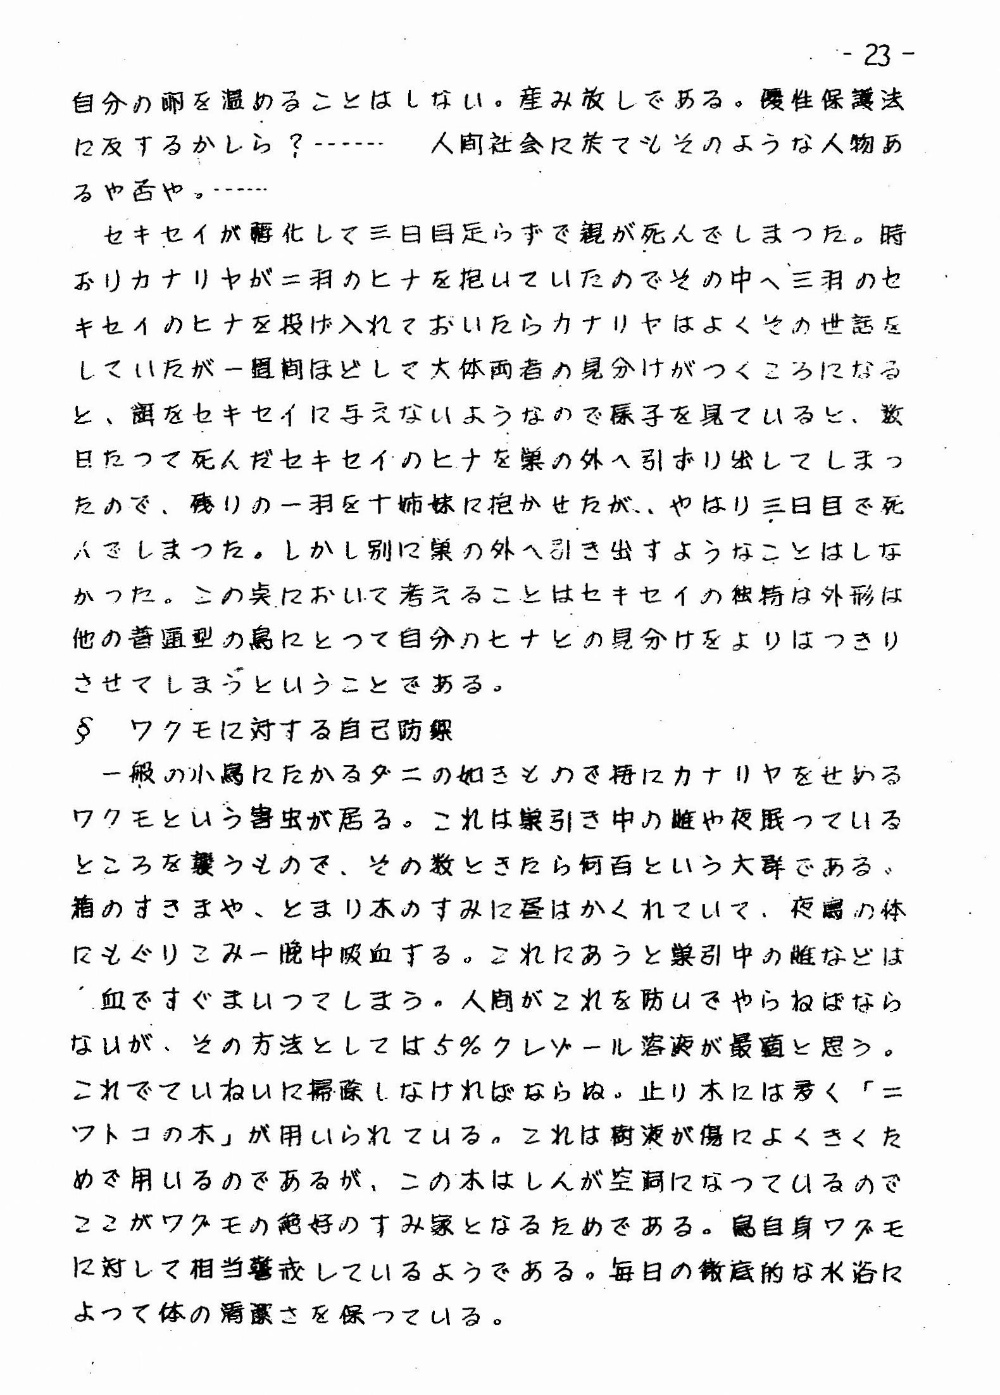 - 23 -
自分の卵を温めることはしない。産み放しである。優性保護法
に反するかしら？……　人間社会に於てもそのような人物あ
るや否や。……
　セキセイが孵化して三日目足らずで親が死んでしまつた。時
おりカナリヤが二羽のヒナを抱いていたのでその中へ三羽のセ
キセイのヒナを投げ入れておいたらカナリヤはよくその世話を
していたが一週間ほどして大体両者の見分けがつくころになる
と、餌をセキセイに与えないようなので様子を見ていると、数
日たつて死んだセキセイのヒナを巣の外へ引ずり出してしまつ
たので、残りの一羽を十姉妹に抱かせたが、、やはり三日目で死
んでしまつた。しかし別に巣の外へ引き出すようなことはしな
かつた。この点において考えることはセキセイの独特な外形は
他の普通型の鳥にとつて自分のヒナとの見分けをよりはつきり
させてしまうということである。
§　ワクモに対する自己防禦
　一般の小鳥にたかるダニの如きもので特にカナリヤをせめる
ワクモという害虫が居る。これは巣引き中の雌や夜眠つている
ところを襲うもので、その数ときたら何百という大群である。
箱のすきまや、とまり木のすみに昼はかくれていて、夜鳥の体
にもぐりこみ一晩中吸血する。これにあうと巣引中の雌などは
血ですぐまいつてしまう。人間がこれを防いでやらねばなら
ないが、その方法としては5%クレゾール溶液が最適と思う。
これでていねいに掃除しなければならぬ。止り木には多く「ニ
ワトコの木」が用いられている。これは樹液が傷によくきくた
めで用いるのであるが、この木はしんが空洞になつているので
ここがワクモの絶好のすみ家となるためである。鳥自身ワクモ
に対して相当警戒しているようである。毎日の徹底的な水浴に
よつて体の清潔さを保つている。